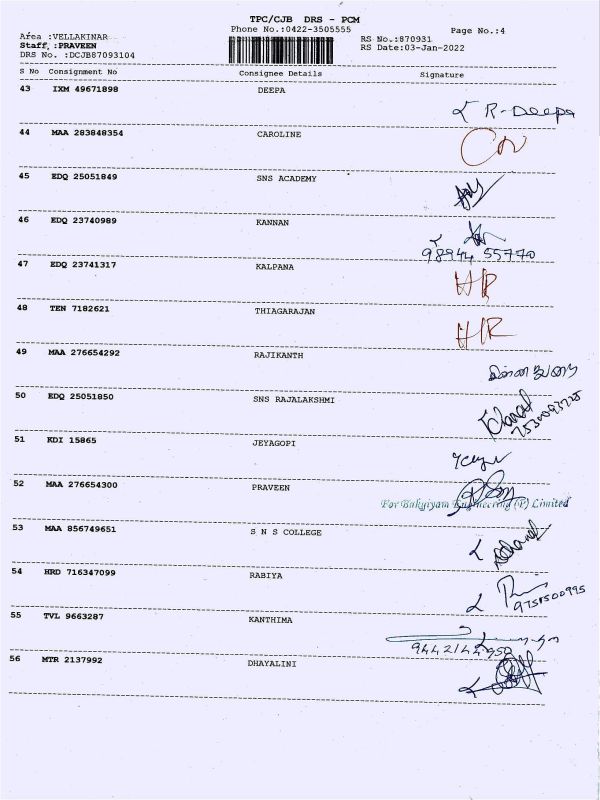 TPC/CJB DRS - PCM
Phone No.:0422-3505555 Page No.:4
Area :VELLAKINAR RS No.:870931
Staff :PRAVEEN RS Date:03-Jan-2022
DRS No. :DCJB87093104
S No Consignment No Consignee Details Signature
43 IXM 49671898 DEEPA
R-Deepa
44 MAA 283848354 CAROLINE
45 EDQ 25051849 SNS ACADEMY
46 EDQ 23740989 KANNAN
98944 55770
47 EDQ 23741317 KALPANA
48 TEN 7182621 THIAGARAJAN
HR
49 MAA 276654292 RAJIKANTH
50 EDQ 25051850 SNS RAJALAKSHMI
51 KDI 15865 JEYAGOPI
52 MAA 276654300 PRAVEEN
For Bakgiyam Engineering (P) Limited
53 MAA 856749651 S N S COLLEGE
54 HRD 716347099 RABIYA
55 TVL 9663287 KANTHIMA
56 MTR 2137992 DHAYALINI